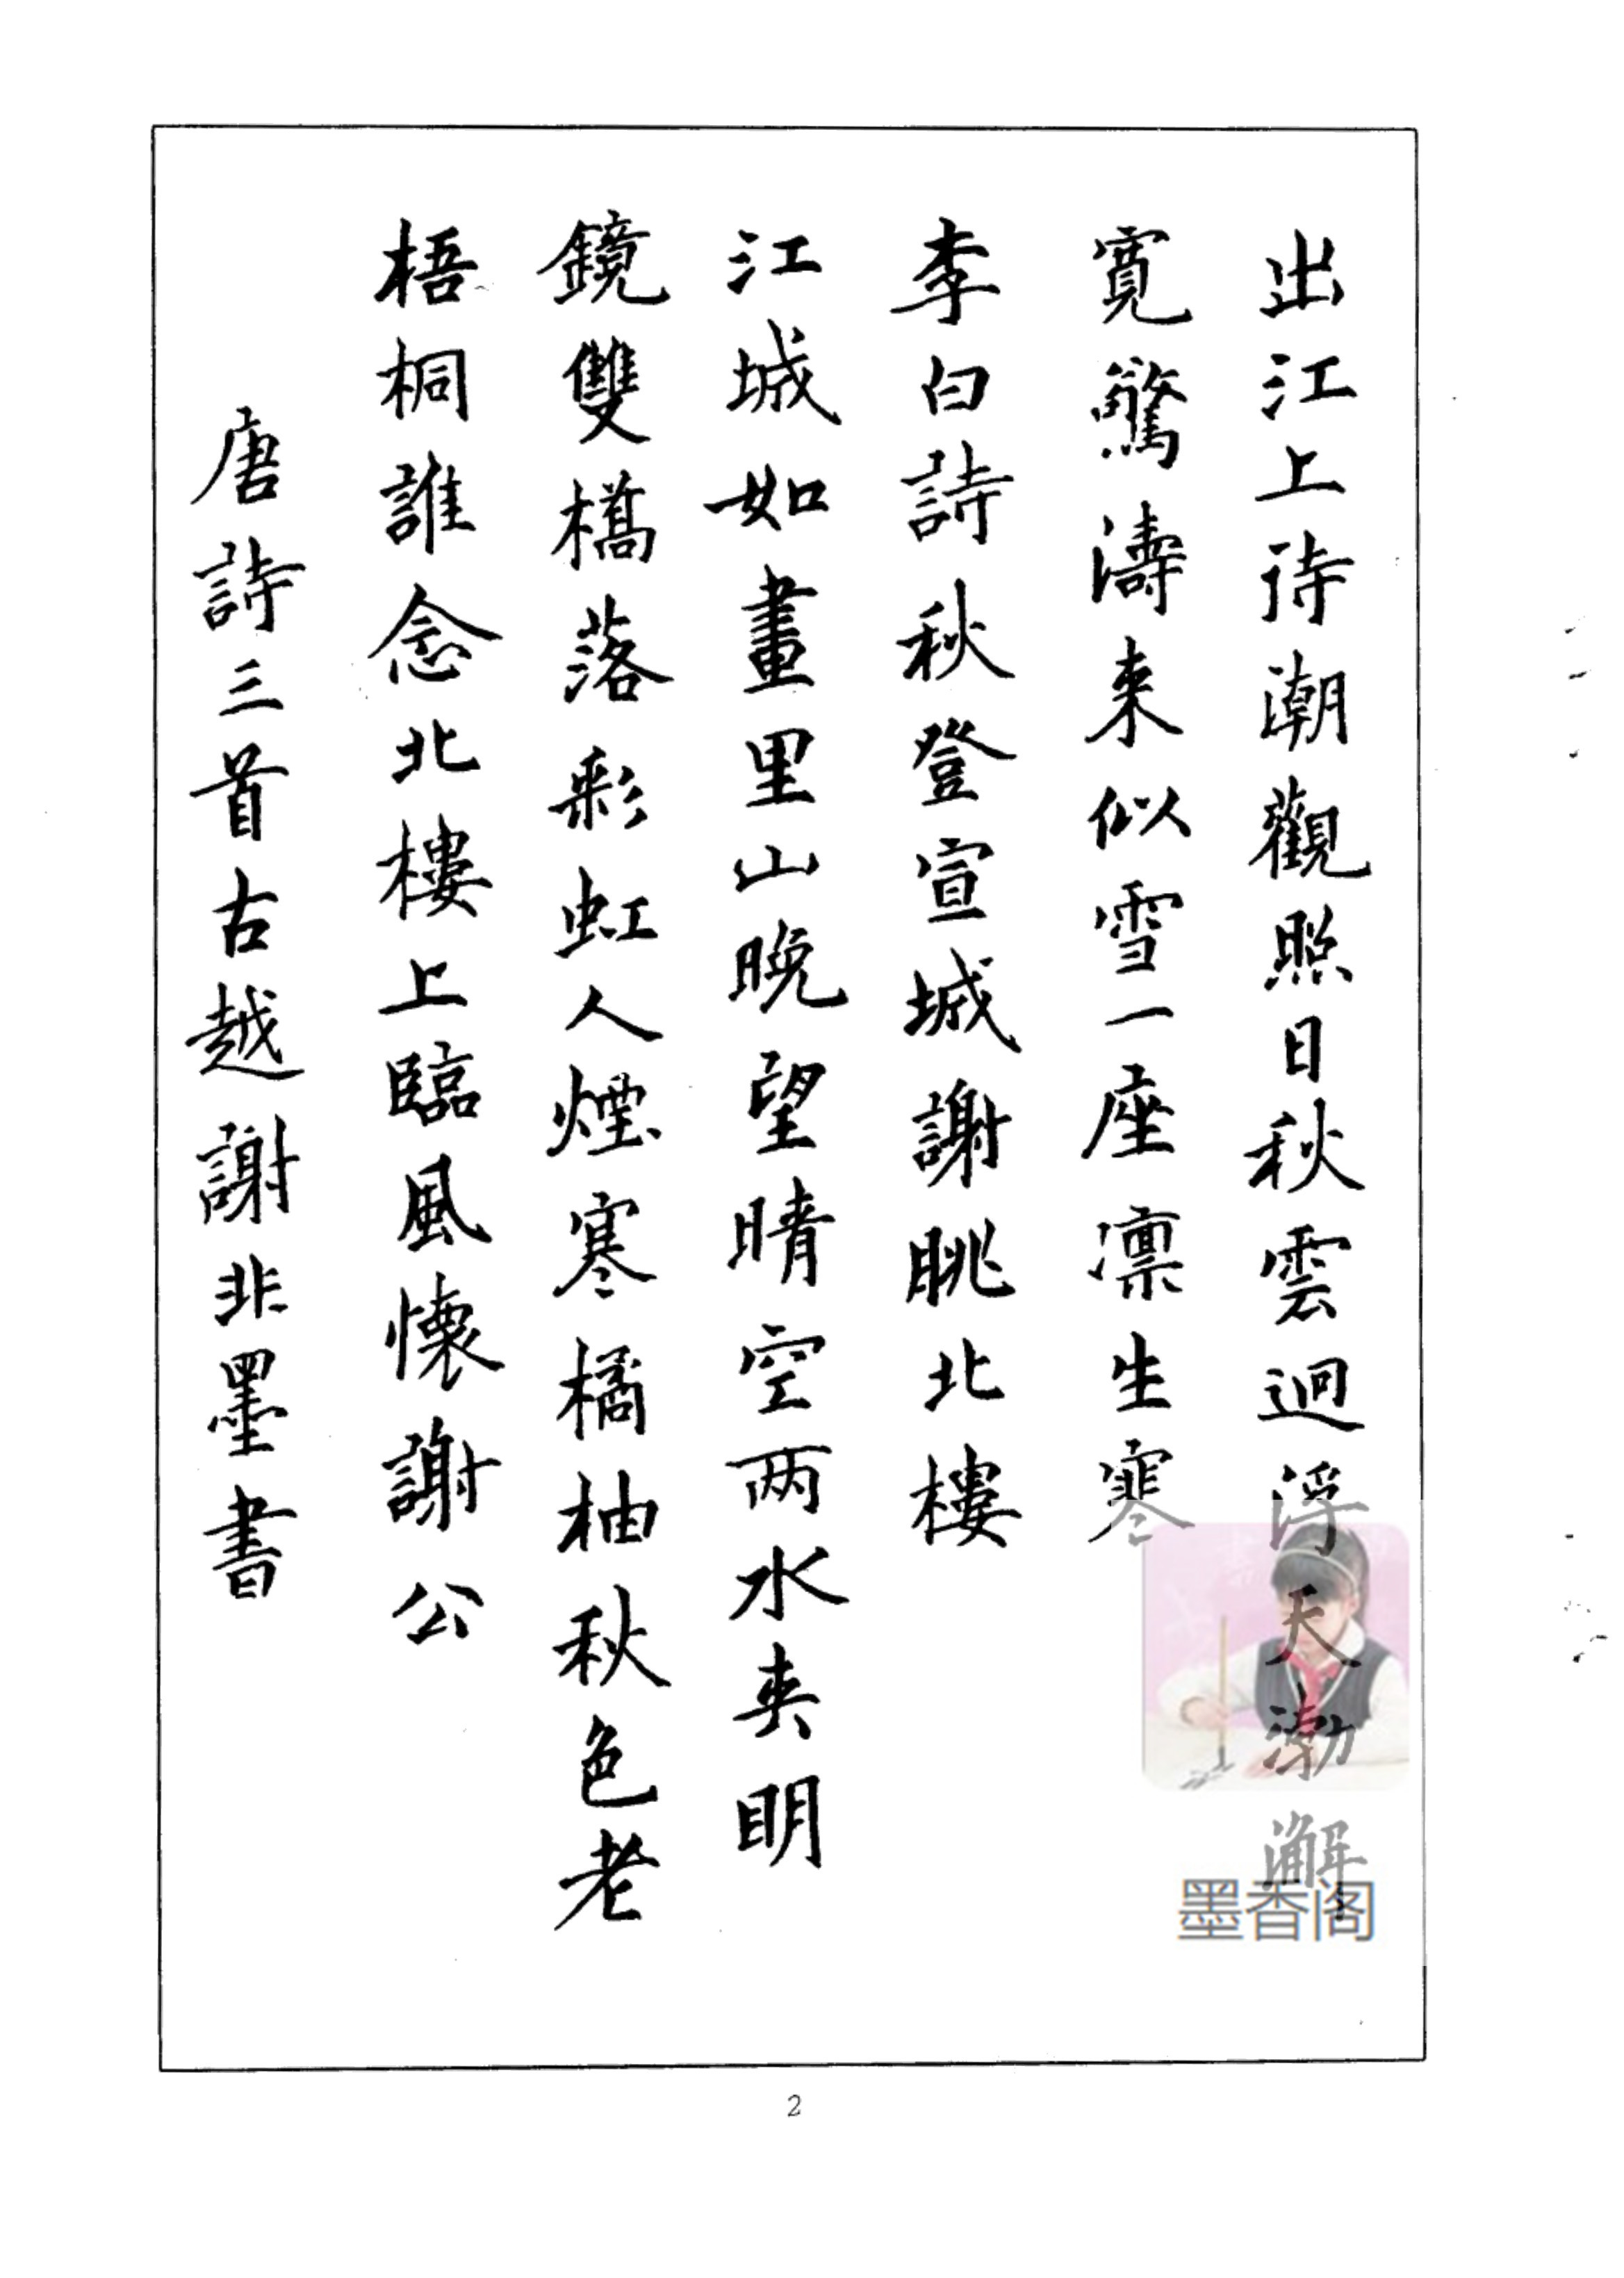 出江上待潮觀照日秋雲迥浮天渤澥
寬驚濤來似雪一座凛生寒
李白詩秋登宣城謝眺北樓
江城如畫里山晚望晴空两水夹明
鏡雙橋落彩虹人煙寒橘柚秋色老
梧桐誰念北樓上臨風懷謝公
唐詩三首古越謝非墨書
墨香阁
2